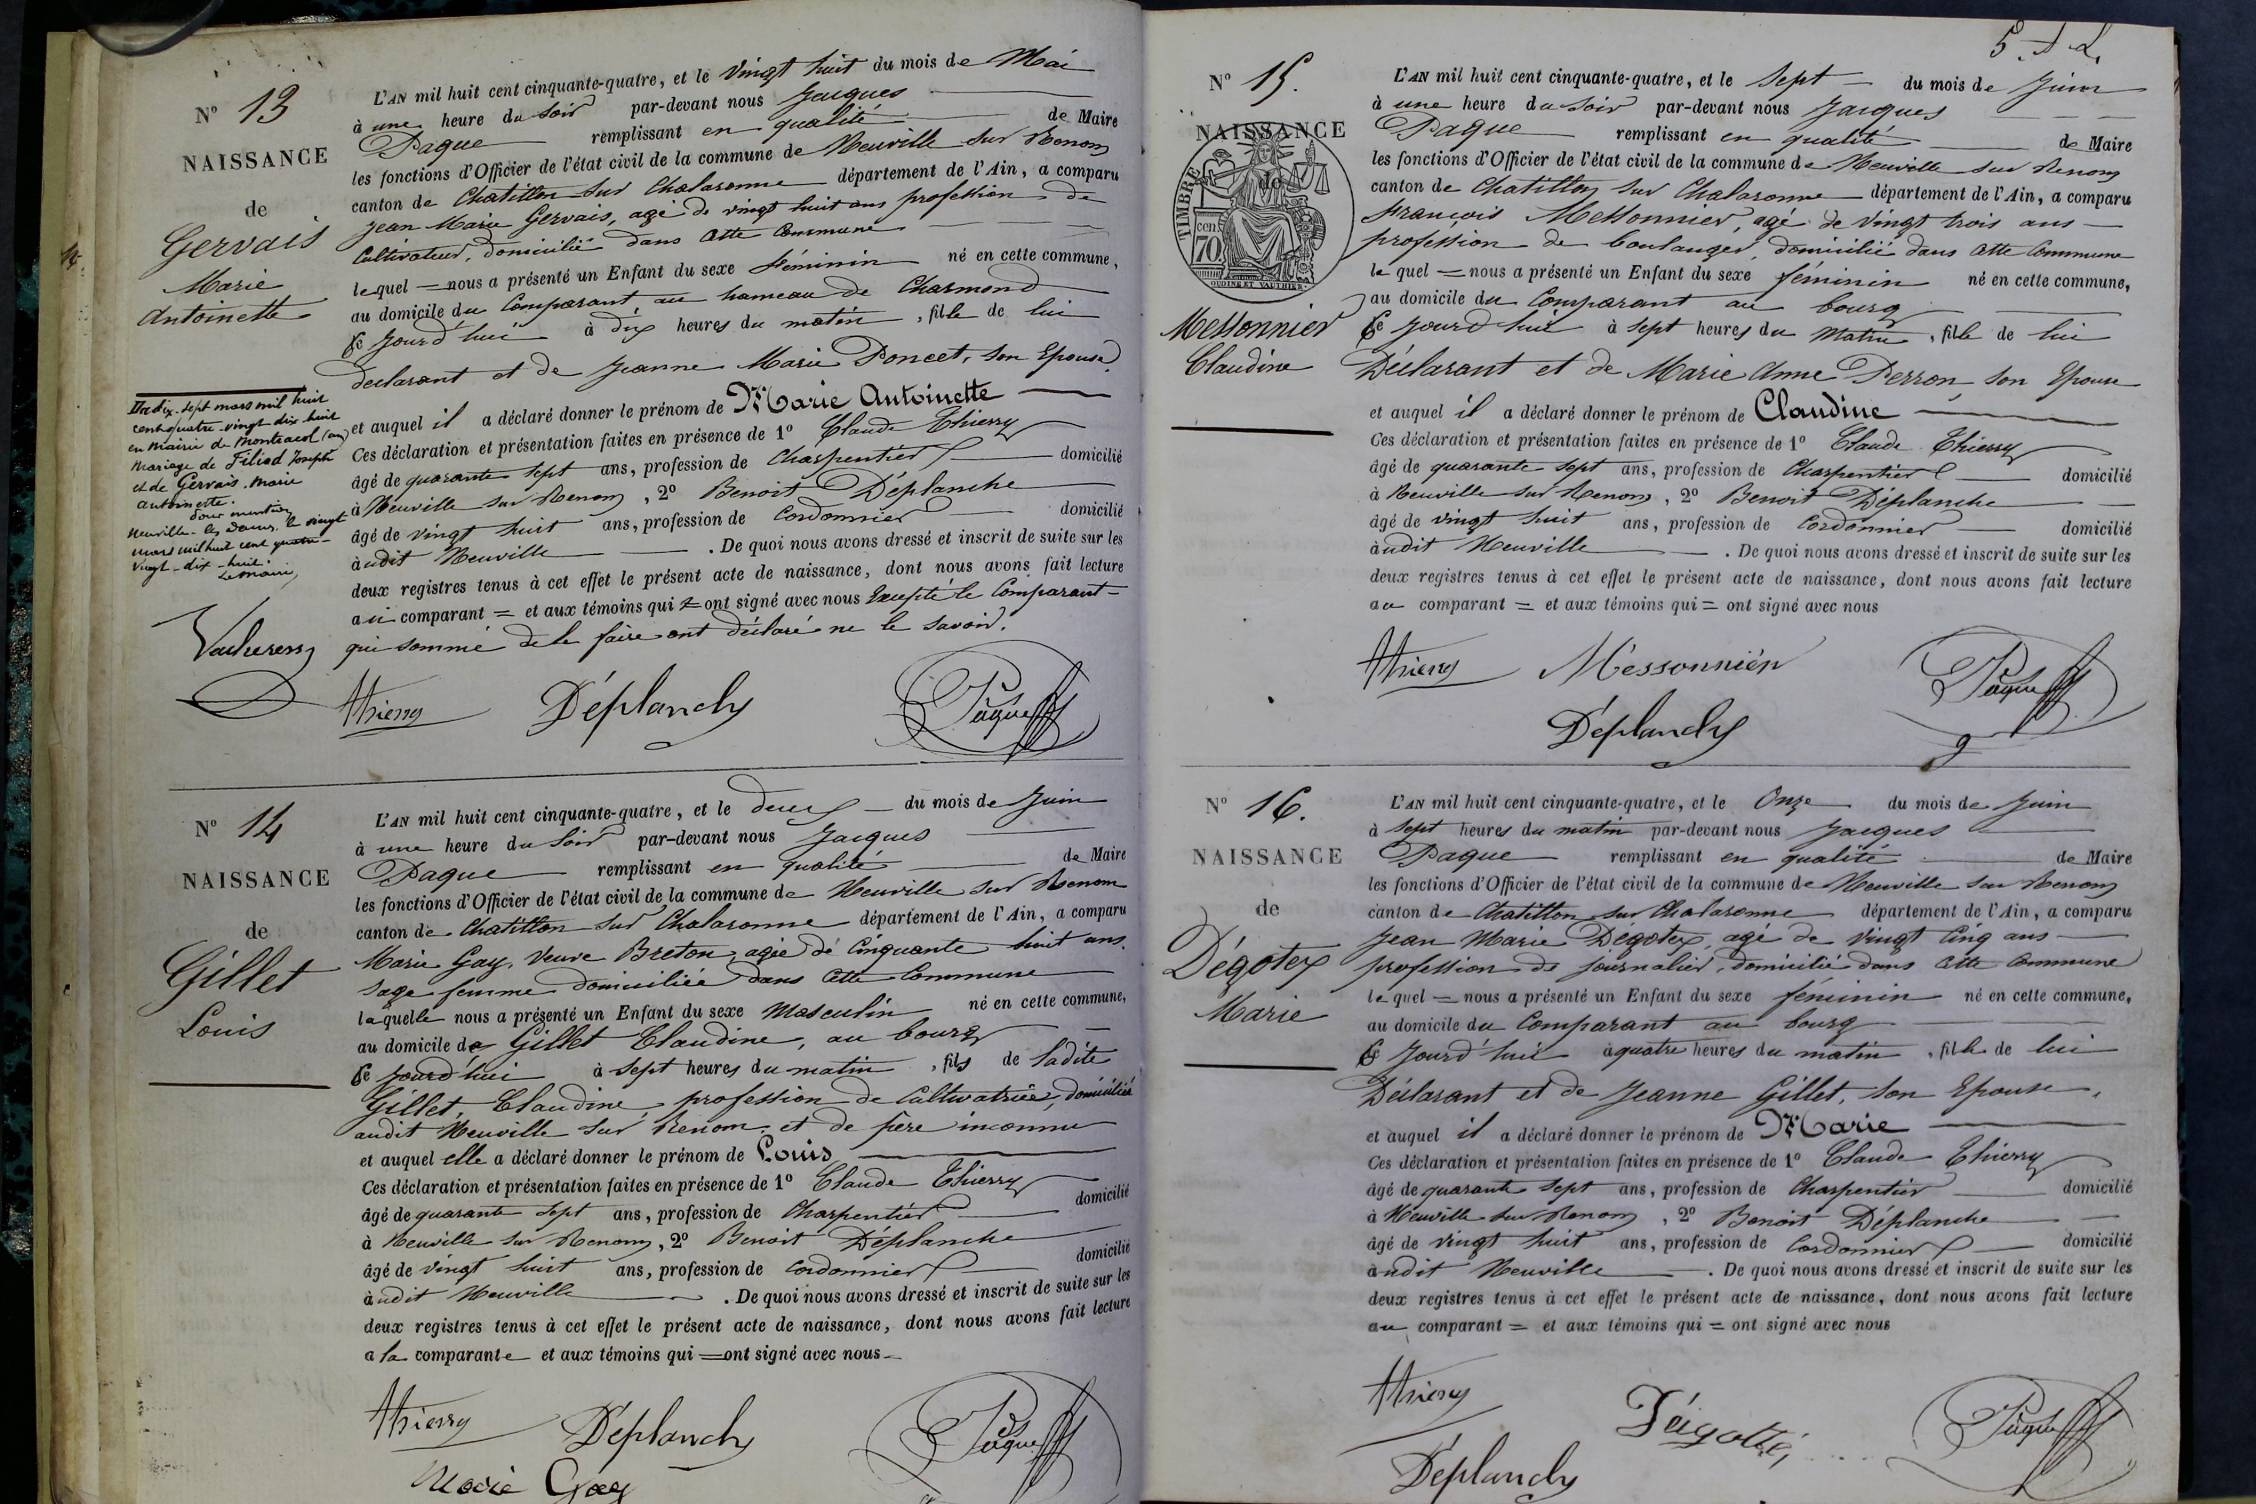 N° 13
NAISSANCE
de
Gervais
Marie
Antoinette
L'AN mil huit cent cinquante-quatre, et le vingt huit du mois de Mai
à une heure du Soir par-devant nous Jacques
Paque remplissant en qualité de Maire
les fonctions d'Officier de l'état civil de la commune de Neuville sur Renom
canton de Chatillon sur Chalaronne département de l'Ain, a comparu
Jean Marie Gervais, agé de vingt huit ans profession de
Cultivateur, domicilié dans cette Commune
lequel = nous a présenté un Enfant du sexe féminin né en cette commune,
au domicile du Comparant au hameau de Charmond
Ce jourd'hui à dix heures du matin, fille de lui
déclarant et de Jeanne Marie Poncet, son Epouse
et auquel il a déclaré donner le prénom de Marie Antoinette
Ces déclaration et présentation faites en présence de 1° Claude Thierry
âgé de quarante sept ans, profession de Charpentier domicilié
à Neuville sur Renom, 2° Benoit Déplanche
âgé de vingt huit ans, profession de Cordonnier domicilié
audit Neuville . De quoi nous avons dressé et inscrit de suite sur les
deux registres tenus à cet effet le présent acte de naissance, dont nous avons fait lecture
au comparant = et aux témoins qui = ont signé avec nous Excepté le Comparant
qui sommé de le faire ont déclaré ne le savoir.
Du dix-sept mars mil huit
cent quatre-vingt dix huit
en Mairie de Montracol (ain)
Mariage de Filiod Joseph
et de Gervais Marie
Antoinette.
Pour mention
Neuville-les-Dames, le vingt
mars mil huit cent quatre-
vingt-dix-huit.
Le Maire,
Thierry Déplanche Pâque
N° 14
NAISSANCE
de
Gillet
Louis
L'AN mil huit cent cinquante-quatre, et le deux du mois de Juin
à une heure du Soir par-devant nous Jacques
Paque remplissant en qualité de Maire
les fonctions d'Officier de l'état civil de la commune de Neuville sur Renom
canton de Chatillon sur Chalaronne département de l'Ain, a comparu
Marie Gay, Veuve Breton, agée de Cinquante huit ans.
Sage femme domiciliée dans cette Commune
laquelle nous a présenté un Enfant du sexe Masculin né en cette commune,
au domicile de Gillet Claudine, au bourg
Ce jourd'hui à sept heures du matin, fils de ladite
Gillet, Claudine profession de Cultivatrice, domiciliée
audit Neuville sur Renom et de père inconnu
et auquel elle a déclaré donner le prénom de Louis
Ces déclaration et présentation faites en présence de 1° Claude Thierry
âgé de quarante sept ans, profession de Charpentier domicilié
à Neuville sur Renom, 2° Benoit Déplanche
âgé de vingt huit ans, profession de Cordonnier domicilié
audit Neuville . De quoi nous avons dressé et inscrit de suite sur les
deux registres tenus à cet effet le présent acte de naissance, dont nous avons fait lecture
a la comparante et aux témoins qui = ont signé avec nous
Thierry Déplanche Pâque
Marie Gay
N° 15.
NAISSANCE
de
TIMBRE
cen
70
OUDINE ET VAUTHIER
Messonnier
Claudine
L'AN mil huit cent cinquante-quatre, et le Sept du mois de Juin
à une heure du Soir par-devant nous Jacques
Paque remplissant en qualité de Maire
les fonctions d'Officier de l'état civil de la commune de Neuville sur Renom
canton de Chatillon sur Chalaronne département de l'Ain, a comparu
François Messonnier, agé de vingt trois ans
profession de boulanger, domicilié dans cette Commune
lequel = nous a présenté un Enfant du sexe féminin né en cette commune,
au domicile du Comparant au bourg
Ce jourd'hui à sept heures du Matin, fille de lui
Déclarant et de Marie Anne Perron, son Epouse
et auquel il a déclaré donner le prénom de Claudine
Ces déclaration et présentation faites en présence de 1° Claude Thierry
âgé de quarante sept ans, profession de Charpentier domicilié
à Neuville sur Renom, 2° Benoit Déplanche
âgé de vingt huit ans, profession de Cordonnier domicilié
audit Neuville . De quoi nous avons dressé et inscrit de suite sur les
deux registres tenus à cet effet le présent acte de naissance, dont nous avons fait lecture
au comparant = et aux témoins qui = ont signé avec nous
Thierry Méssonniér Pâque
Déplanche
N° 16.
NAISSANCE
de
Dégotex
Marie
L'AN mil huit cent cinquante-quatre, et le Onze du mois de Juin
à sept heures du matin par-devant nous Jacques
Paque remplissant en qualité de Maire
les fonctions d'Officier de l'état civil de la commune de Neuville sur Renom
canton de Chatillon sur Chalaronne département de l'Ain, a comparu
Jean Marie Dégotex, agé de vingt Cinq ans
profession de journalier, domicilié dans cette Commune
lequel = nous a présenté un Enfant du sexe féminin né en cette commune,
au domicile du Comparant au bourg
Ce jourd'hui à quatre heures du matin, fille de lui
Déclarant et de Jeanne Gillet, son Epouse,
et auquel il a déclaré donner le prénom de Marie
Ces déclaration et présentation faites en présence de 1° Claude Thierry
âgé de quarante sept ans, profession de Charpentier domicilié
à Neuville sur Renom, 2° Benoit Déplanche
âgé de vingt huit ans, profession de Cordonnier domicilié
audit Neuville . De quoi nous avons dressé et inscrit de suite sur les
deux registres tenus à cet effet le présent acte de naissance, dont nous avons fait lecture
au comparant = et aux témoins qui = ont signé avec nous
Thierry Pâque
Déplanche